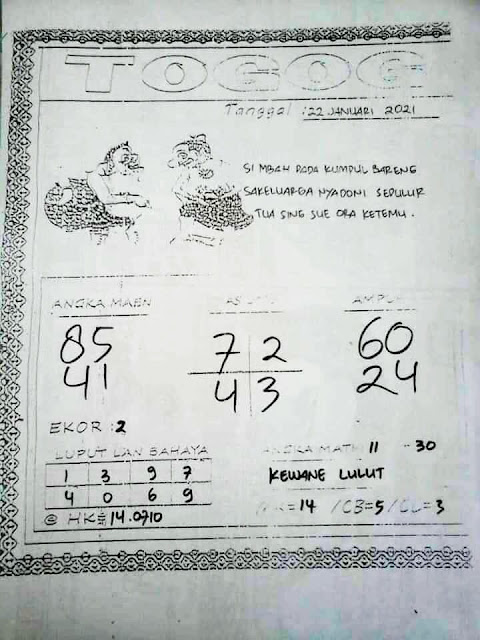 TOGOG
Tanggal : 22 JANUARI 2021
SI MBAH PADA KUMPUL BARENG
SAKELUARGA NYADONI SEDULUR
TUA SING SUE ORA KETEMU.
ANGKA MAEN
85
41
72
43
60
24
EKOR : 2
LUPUT LAN BAHAYA
1 3 9 7
4 0 6 9
@ HK = 14.0710
ANGKA MATI 11 - 30
KEWANE LULUT
=14 / CB=5 / CL=3